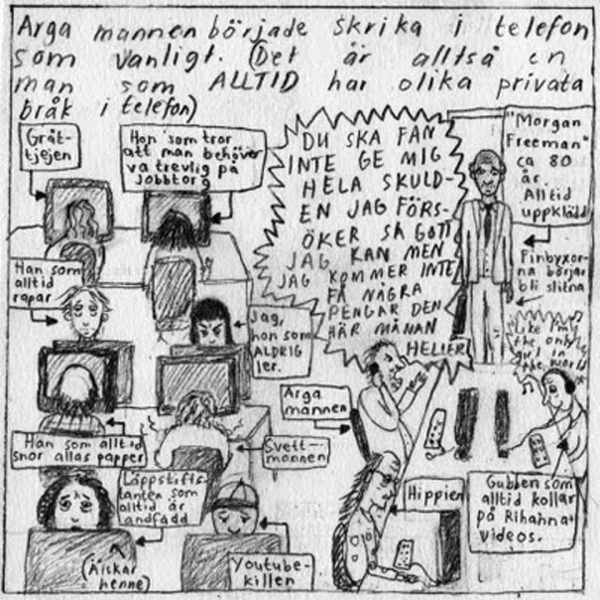 Arga mannen började skrika i telefon
som vanligt. (Det är alltså en
man som ALLTID har olika privata
bråk i telefon)
Gråt-
tjejen
Hon som tror
att man behöver
va trevlig på
Jobbtorg
DU SKA FAN
INTE GE MIG
HELA SKULD-
EN JAG FÖRS-
ÖKER SÅ GOTT
JAG KAN MEN
JAG KOMMER INTE
FÅ NÅGRA
PENGAR DEN
HÄR MÅNAN
HELLER
"Morgan
Freeman"
ca 80
år.
Alltid
uppklädd
Finbyxor-
na börjar
bli slitna
Han som
alltid
rapar
Jag,
hon som
ALDRIG
ler.
Like I'm
the only
girl in
the world
Arga
mannen
Han som alltid
snor allas papper
Svett-
mannen
Läppstifts-
tanten som
alltid är
andfådd
(Älskar
henne)
Youtube-
killen
Hippien
Gubben som
alltid kollar
på Rihanna-
videos.